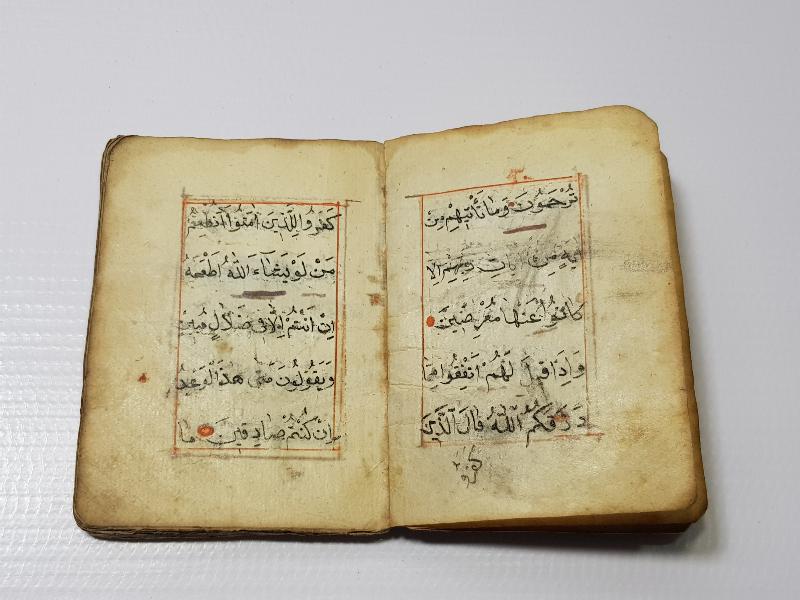 تُرْحَمُونَ وَمَا تَأْتِيهِمْ مِنْ
آيَةٍ مِنْ آيَاتِ رَبِّهِمْ اِلَّا
كَانُوا عَنْهَا مُعْرِضِينَ
وَاِذَا قِيلَ لَهُمْ اَنْفِقُوا مِمَّا
رَزَقَكُمُ اللّٰهُ قَالَ الَّذِينَ
كفرو
كَفَرُو الِلَّذِينَ اٰمَنُوا اَنُطْعِمُ
مَنْ لَوْ يَشَاءُ اللّٰهُ اَطْعَمَهُ
اِنْ اَنْتُمْ اِلَّا فِي ضَلَالٍ مُبِينٍ
وَيَقُولُونَ مَتٰى هٰذَا الْوَعْدُ
اِنْ كُنْتُمْ صَادِقِينَ مَا